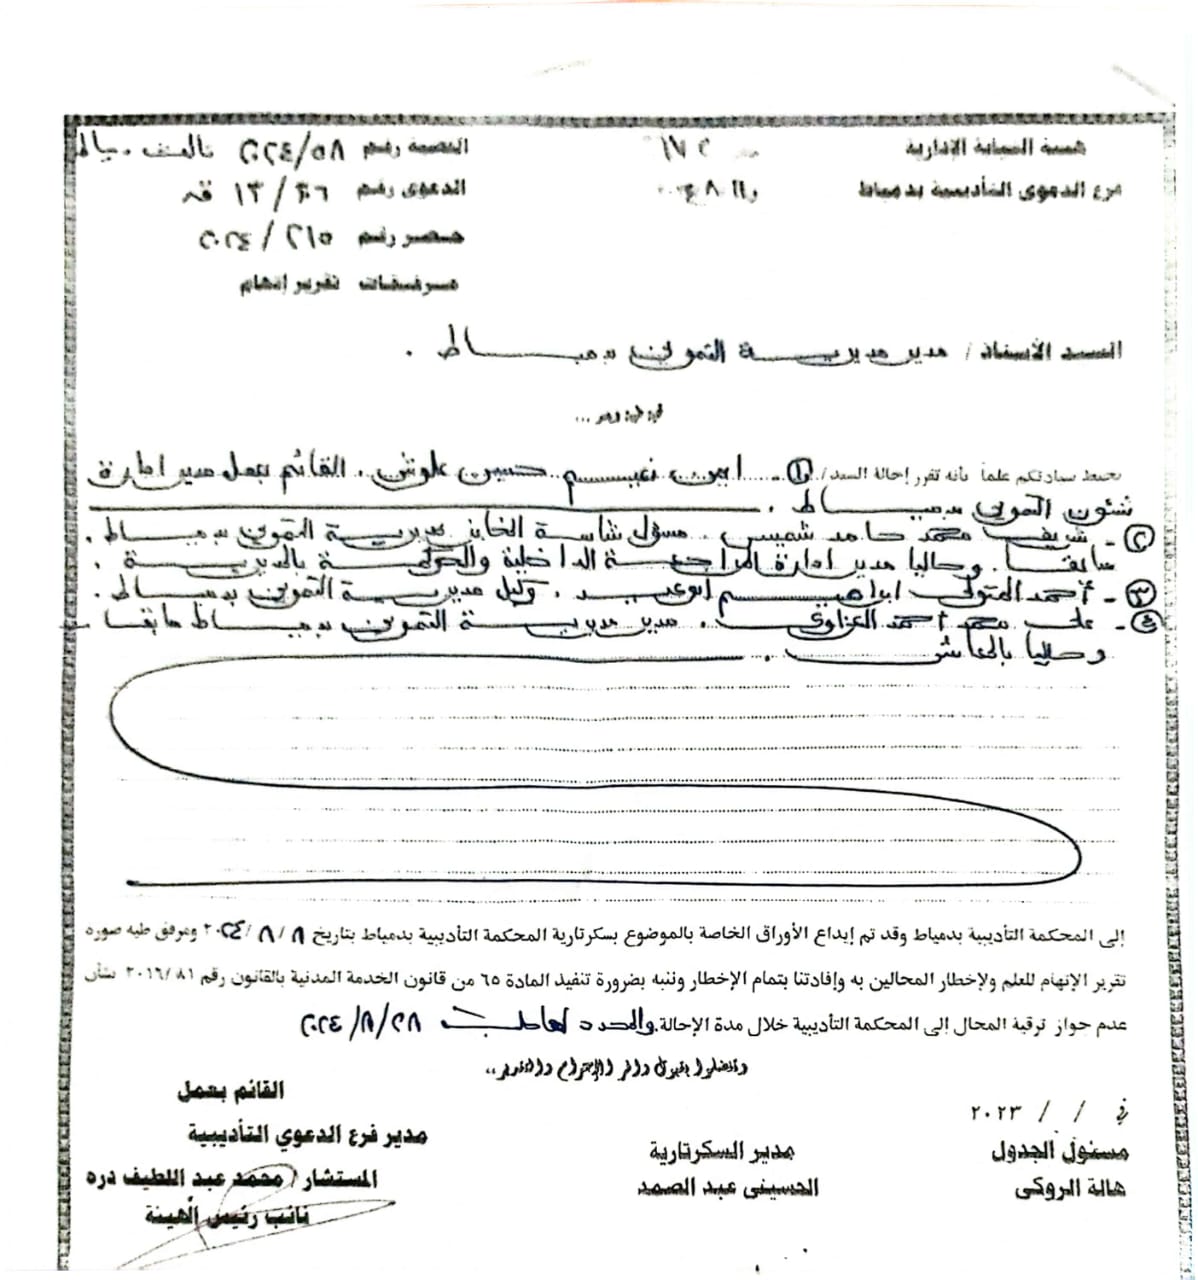 هيئة النيابة الإدارية
فرع الدعوى التأديبية بدمياط
القضية رقم ٢٠٢٤/٥٨ ثالث دمياط
الدعوى رقم / ١٣ ق
حصر رقم ٢١٥ / ٢٠٢٤
مرفقات تقرير إتهام
السيد الأستاذ / مدير مديرية التموين بدمياط .
تحية طيبة وبعد ...
نحيط سيادتكم علماً بأنه تقرر إحالة السيد / ①- ايمن نعيم حسين علوش . القائم بعمل مدير ادارة
شئون التموين بدمياط .
②- شريف محمد حامد شميس . مسؤل شاسة المخابز بمديرية التموين بدمياط .
سابقا . وحاليا مدير ادارة المراجعة الداخلية والحوكمة بالمديرية .
③- أحمد المتولى ابراهيم ابوعيد . وكيل مديرية التموين بدمياط .
④- على محمد أحمد العزاوى . مدير مديرية التموين بدمياط سابقا
وحاليا بالمعاش .
إلى المحكمة التأديبية بدمياط وقد تم إيداع الأوراق الخاصة بالموضوع بسكرتارية المحكمة التأديبية بدمياط بتاريخ ٨ / ٨ / ٢٠٢٤ ومرفق طيه صوره
تقرير الإتهام للعلم ولإخطار المحالين به وإفادتنا بتمام الإخطار وننبه بضرورة تنفيذ المادة ٦٥ من قانون الخدمة المدنية بالقانون رقم ٨١ /٢٠١٦ بشأن
عدم جواز ترقية المحال إلى المحكمة التأديبية خلال مدة الإحالة. والمحدد لها جلسة ٢٨/٨/٢٠٢٤
وتفضلوا بقبول وافر الاحترام والتقدير،،
في / / ٢٠٢٣
مسئول الجدول
هالة الروكى
مدير السكرتارية
الحسينى عبد الصمد
القائم بعمل
مدير فرع الدعوي التأديبية
المستشار / محمد عبد اللطيف دره
نائب رئيس الهيئة